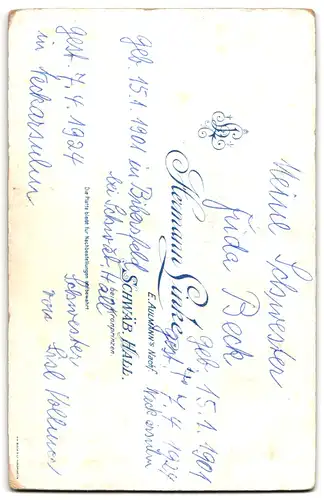 Meine Schwester
Frida Beck
geb. 15.1.1901
gest. 7.4.1924
Neckarsulm
Hermann Lanz
E. Aulmann's Nachf.
SCHWÄB. HALL.
beim Kronprinzen.
Die Platte bleibt für Nachbestellungen aufbewahrt.
geb. 15.1.1901 in Bibersfeld
bei Schwäb. Hall
gest. 7.4.1924
in Neckarsulm
Schwester
von